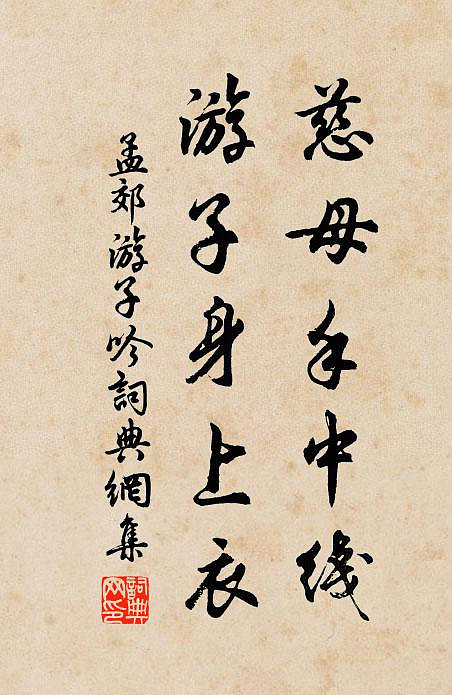 慈母手中线
游子身上衣
孟郊游子吟詞典網集
詞典网印